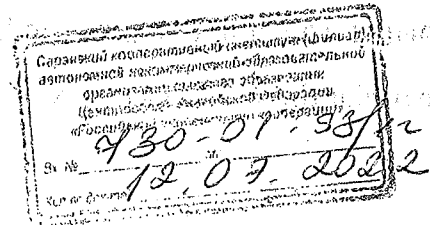 Саранский кооперативный институт (филиал)
автономной некоммерческой образовательной
организации высшего образования
Центросоюза Российской Федерации
«Российский университет кооперации»
Вх. №
12.07.2022
Кол-во листов